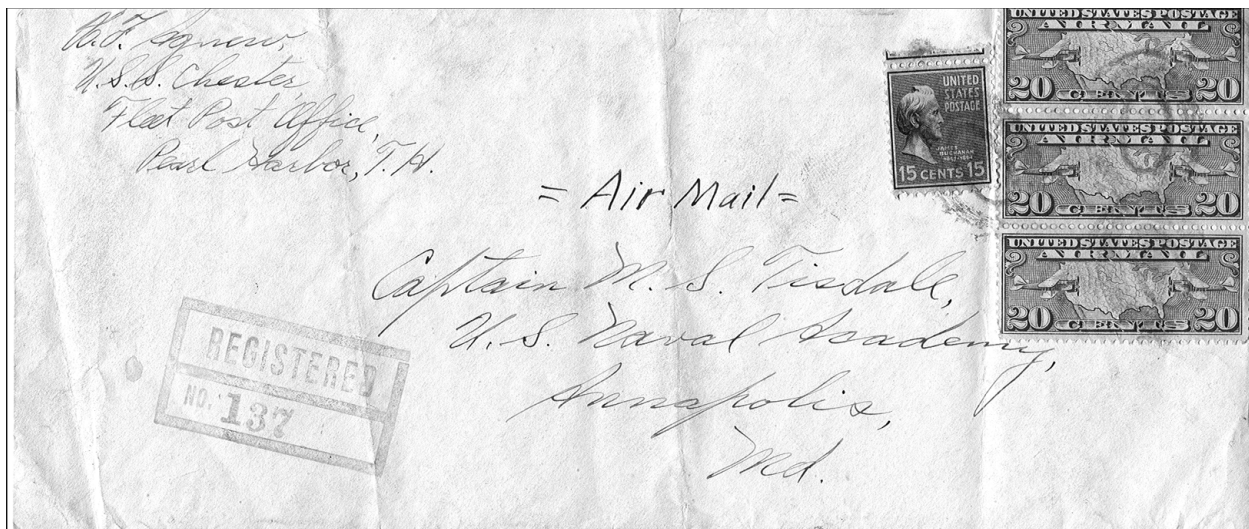 H. F. Agnew,
U.S.S. Chester,
Fleet Post Office,
Pearl Harbor, T.H.
= Air Mail =
Captain M. S. Tisdale,
U. S. Naval Academy,
Annapolis,
Md.
REGISTERED
NO. 137
UNITED
STATES
POSTAGE
JAMES
BUCHANAN
15 CENTS 15
UNITED STATES POSTAGE
AIR MAIL
20 CENTS 20
UNITED STATES POSTAGE
AIR MAIL
20 CENTS 20
UNITED STATES POSTAGE
AIR MAIL
20 CENTS 20